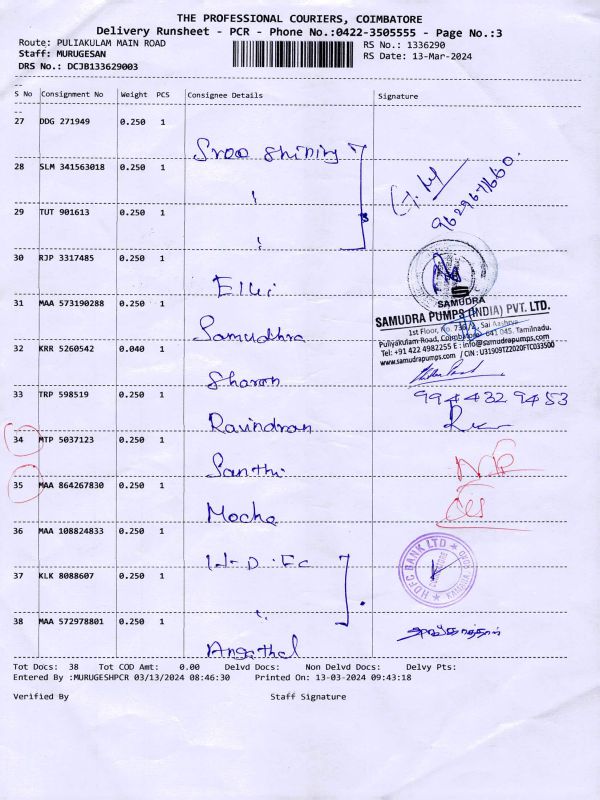 THE PROFESSIONAL COURIERS, COIMBATORE
Delivery Runsheet - PCR - Phone No.:0422-3505555 - Page No.:3
Route: PULIAKULAM MAIN ROAD
RS No.: 1336290
Staff: MURUGESAN
RS Date: 13-Mar-2024
DRS No.: DCJB133629003
S No Consignment No Weight PCS Consignee Details Signature
27 DDG 271949 0.250 1
28 SLM 341563018 0.250 1
9629671660.
29 TUT 901613 0.250 1
30 RJP 3317485 0.250 1
Elki
31 MAA 573190288 0.250 1
Samudhra
SAMUDRA
SAMUDRA PUMPS (INDIA) PVT. LTD.
1st Floor, No. 730/2, Sai Aashraya,
Puliyakulam Road, Coimbatore - 641 045. Tamilnadu.
Tel: +91 422 4982255 E : info@samudrapumps.com
www.samudrapumps.com / CIN : U31909TZ2020FTC033500
32 KRR 5260542 0.040 1
Sharon
33 TRP 598519 0.250 1
9944329453
Ravindran
34 MTP 5037123 0.250 1
Santhi
35 MAA 864267830 0.250 1
Mocha
36 MAA 108824833 0.250 1
H-D.FC
HDFC BANK LTD
COIMBATORE
37 KLK 8088607 0.250 1
38 MAA 572978801 0.250 1
Angathal
Tot Docs: 38 Tot COD Amt: 0.00 Delvd Docs: Non Delvd Docs: Delvy Pts:
Entered By :MURUGESHPCR 03/13/2024 08:46:30 Printed On: 13-03-2024 09:43:18
Verified By Staff Signature